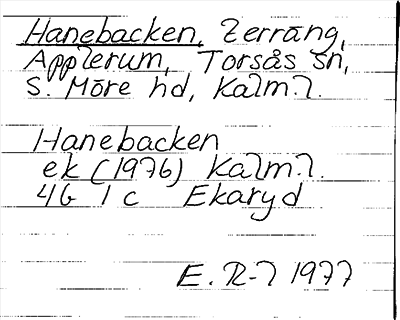 Hanebacken, Terräng,
Applerum, Torsås sn,
S. Möre hd, Kalm. l.
Hanebacken
ek (1976) Kalm. l.
4G 1 c Ekaryd
E. R-l 1977